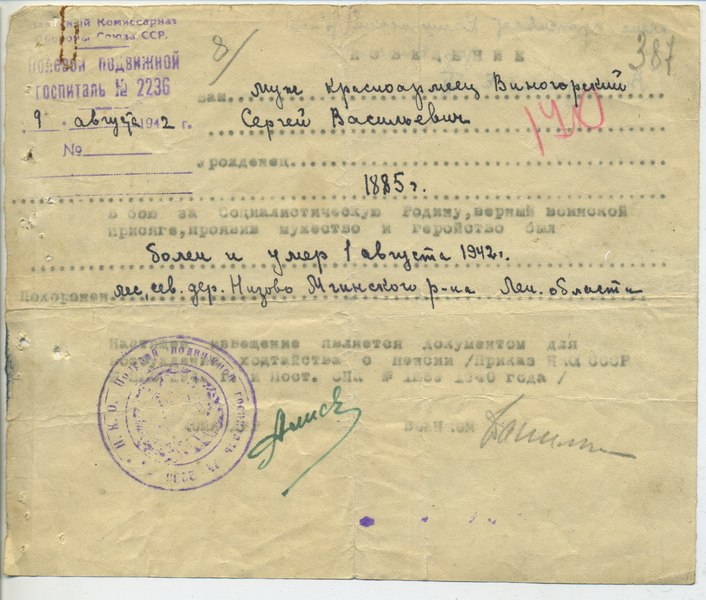 Комиссариат
Обороны Союза ССР.
Полевой подвижной
госпиталь № 2236
9 августа 1942 г.
№
8/
ИЗВЕЩЕНИЕ
387
Ваш муж Красноармеец Виногорский
Сергей Васильевич
уроженец
1885 г.
В бою за Социалистическую Родину, верный воинской
присяге, проявив мужество и геройство был
болен и умер 1 августа 1942 г.
Похоронен лес, сев. дер. Низово Мгинского р-на Лен. области
Настоящее извещение является документом для
возбуждения ходатайства о пенсии /Приказ НКО СССР
Пост. СНК № 1940 года/
Н.К.О. Полевой подвижной госпиталь № 2236